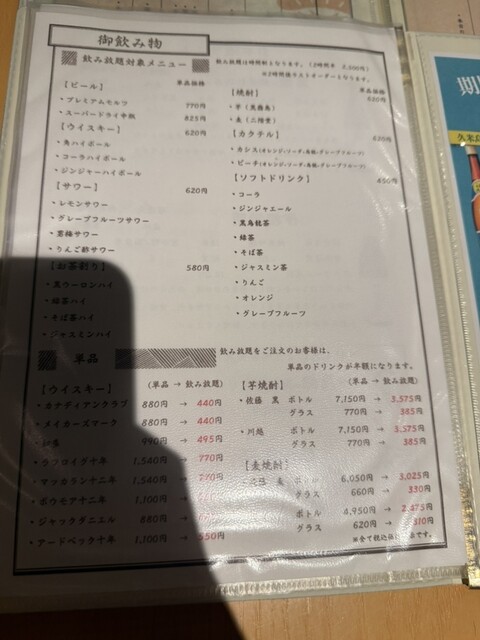 御飲み物
飲み放題対象メニュー
飲み放題は時間制となります。(2時間半
※2時間後ラストオーダーとなります。
【ビール】 単品価格
・プレミアムモルツ 770円
・スーパードライ中瓶 825円
【ウイスキー】 620円
・角ハイボール
・コーラハイボール
・ジンジャーハイボール
【サワー】 620円
・レモンサワー
・グレープフルーツサワー
・りんご酢サワー
【お茶割り】 580円
・黒ウーロンハイ
・緑茶ハイ
・そば茶ハイ
・ジャスミンハイ
【焼酎】 単品価格
620円
・芋(黒霧島)
・麦(二階堂)
【カクテル】 620円
・カシス(オレンジ、ソーダ、烏龍、グレープフルーツ)
・ピーチ(オレンジ、ソーダ、烏龍、グレープフルーツ)
【ソフトドリンク】
・コーラ
・ジンジャエール
・黒烏龍茶
・緑茶
・そば茶
・ジャスミン茶
・りんご
・オレンジ
・グレープフルーツ
単品
飲み放題をご注文のお客様は、
単品のドリンクが半額になります。
【ウイスキー】 (単品 → 飲み放題)
・カナディアンクラブ 880円 → 440円
・メイカーズマーク 880円 → 440円
990円 → 495円
・ラフロイグ十年 1,540円 → 770円
・マッカラン十二年 1,540円 → 770円
・ボウモア十二年 1,100円 →
・ジャックダニエル 880円 →
・アードベック十年 1,100円 → 550円
【芋焼酎】 (単品 → 飲み放題)
・佐藤 黒 ボトル 7,150円 → 3,575円
グラス 770円 → 385円
・川越 ボトル 7,150円 → 3,575円
グラス 770円 → 385円
【麦焼酎】
6,050円 → 3,025円
グラス 660円 → 330円
ボトル 4,950円 → 2,475円
グラス 620円 → 310円